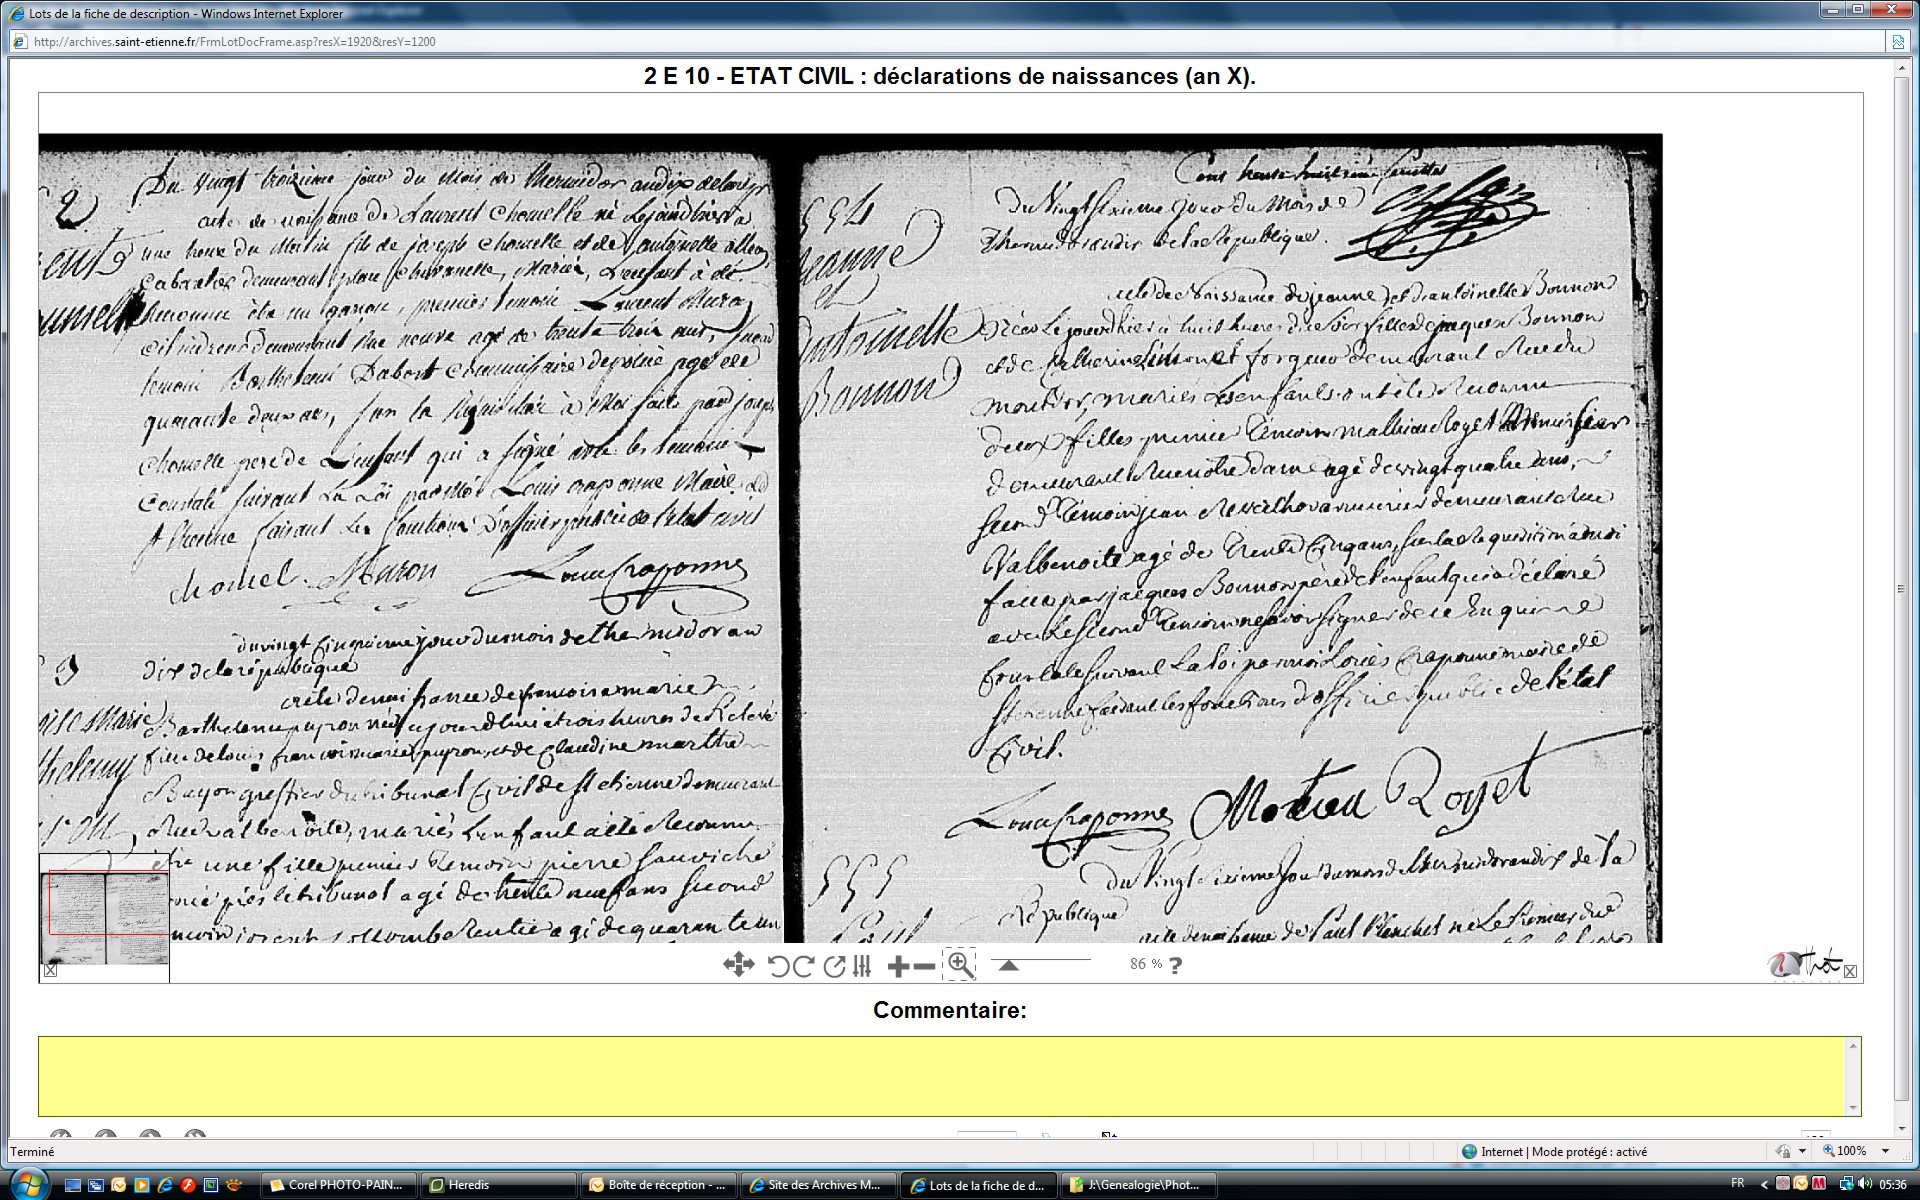 Lots de la fiche de description - Windows Internet Explorer
http://archives.saint-etienne.fr/FrmLotDocFrame.asp?resX=1920&resY=1200
2 E 10 - ETAT CIVIL : déclarations de naissances (an X).
Du vingt troizieme jour du mois de thermidor an dix de la
acte de naissance de Laurent Chomelle né le jourd'hier a
une heure du matin fils de joseph Chomelle et de antoinette
Cabaretier demeurant place chavanelle, mariés, L'enfant à été
Reconnu être un garçon, premier temoin Laurent Muron
demeurant Rue neuve agé de trente trois ans, second
temoin Barthelemi Dabort Commissaire de police agé de
quarante deux ans, sur la Réquisition à Moi faite par joseph
Chomelle pere de L'enfant qui a signé avec les temoins
Constaté suivant La Loi par moi Louis Craponne Maire de
St Etienne faisant Les fonctions D'officier public de l'état civil
chomel Muron Louis Craponne
du vingt cinquieme jour du mois de thermidor an
dix de la république
acte de naissance de francoise marie
Barthelemy peyron née ce jourd'hui à trois heures de
fille de louis francois marie peyron, et de Claudine marthe
Buyon greffier du tribunal Civil de St etienne demeurant
Rue valbenoite, mariés L'enfant a été Reconnu
être une fille premier Temoin pierre Sauviche
près le tribunal agé de trente neuf ans second
temoin Colombe Rentier agé de quarante un
Cent trente huitieme feuillet
554
jeanne
et
antoinette
Bonnon
du Vingt Sixieme jour du Mois de
Thermidor an dix de la Republique.
acte de Naissance de jeanne et d'antoinette Bonnon
Nées Le jourd'hier à huit heures du Soir filles de jacques Bonnon
et de Catherine Limonet forgeur demeurant Rue du
mont d'or, mariés Les enfants ont été Reconnu
deux filles premier Témoin mathieu Royet Armurier
demeurant Rue notre dame agé de vingt quatre ans,
second Témoin jean armurier demeurant Rue
Valbenoite agé de Trente Cinq ans, sur la Requisition à moi
faite par jacques Bonnon père de L'enfant qui a déclaré
avec le second Temoin ne savoir signer de ce Enquis
Constaté suivant La Loi par moi Louis Craponne maire de
St etienne faisant les fonctions d'officier public de l'état
Civil.
Louis Craponne Matieu Royet
555
Paul
du Vingt Sixieme Jour du mois de thermidor an dix de la
République
acte de naissance de Paul Planchet né Le
86 %
?
Commentaire:
Terminé
Internet | Mode protégé : activé
100%
Corel PHOTO-PAIN...
Heredis
Boîte de réception - ...
Site des Archives M...
Lots de la fiche de d...
J:\Genealogie\Phot...
FR
05:36